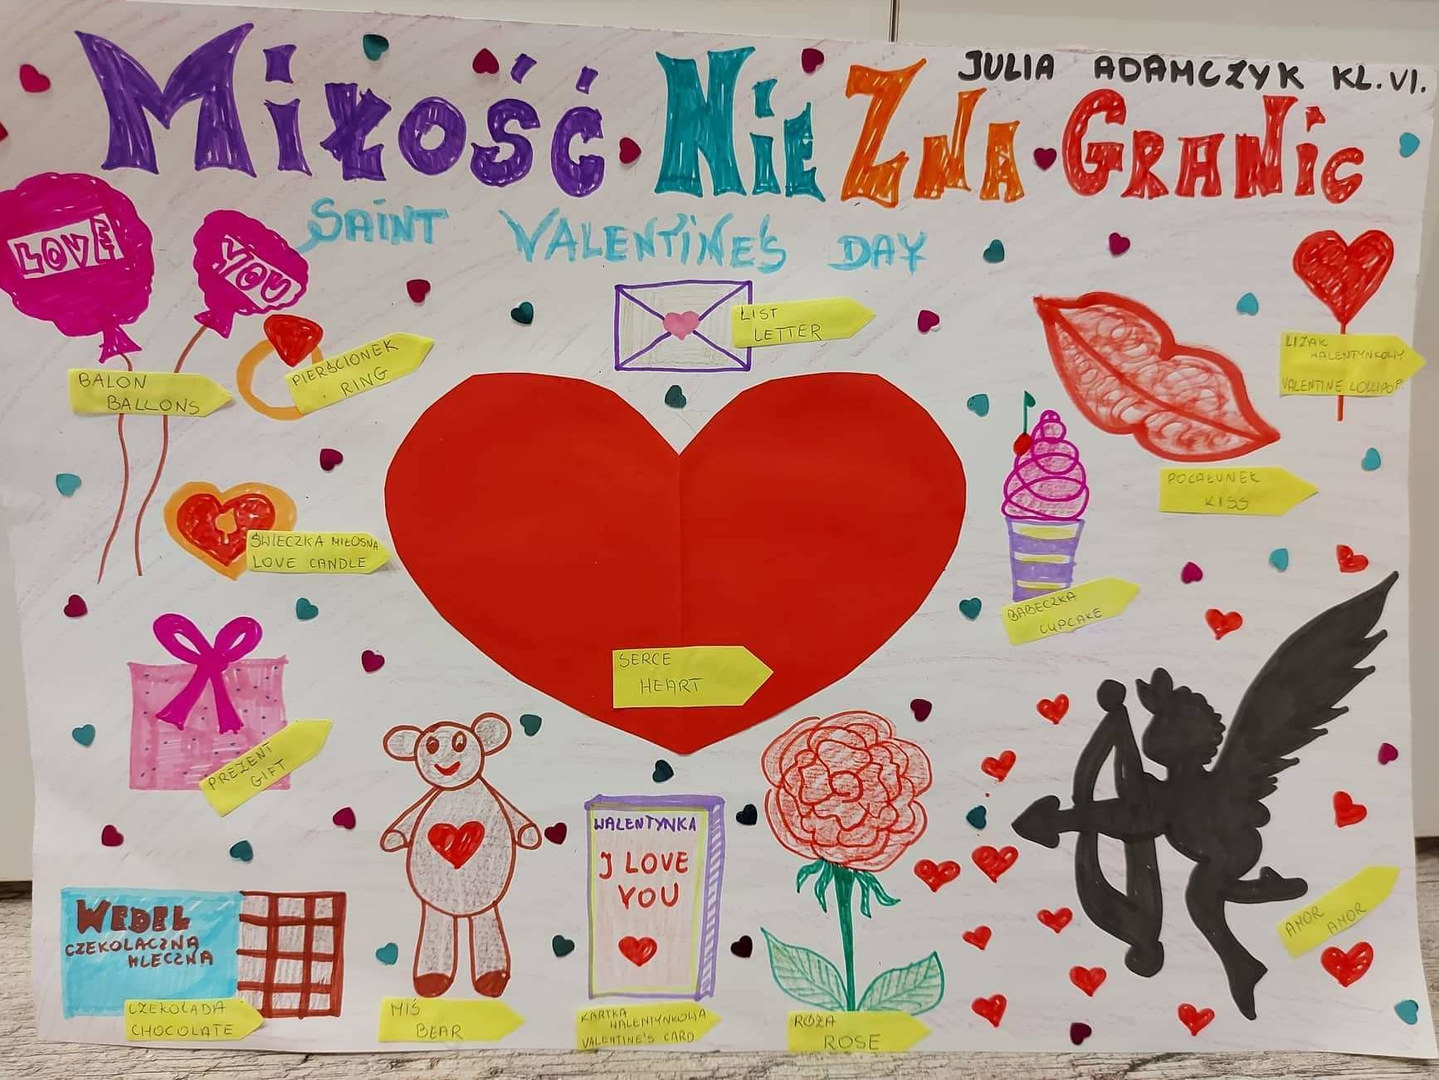 JULIA ADAMCZYK KL.VI.
MIŁOŚĆ NIE ZNA GRANIC
SAINT VALENTINE'S DAY
LOVE
YOU
LIST
LETTER
PIERŚCIONEK
RING
BALON
BALLONS
LIZAK
WALENTYNKOWY
VALENTINE LOLLIPOP
POCAŁUNEK
KISS
ŚWIECZKA MIŁOSNA
LOVE CANDLE
BABECZKA
CUPCAKE
SERCE
HEART
PREZENT
GIFT
WALENTYNKA
I LOVE
YOU
WEDEL
CZEKOLACZNA
MLECZNA
AMOR
AMOR
CZEKOLADA
CHOCOLATE
MIŚ
BEAR
KARTKA
WALENTYNKOWA
VALENTINE'S CARD
RÓŻA
ROSE